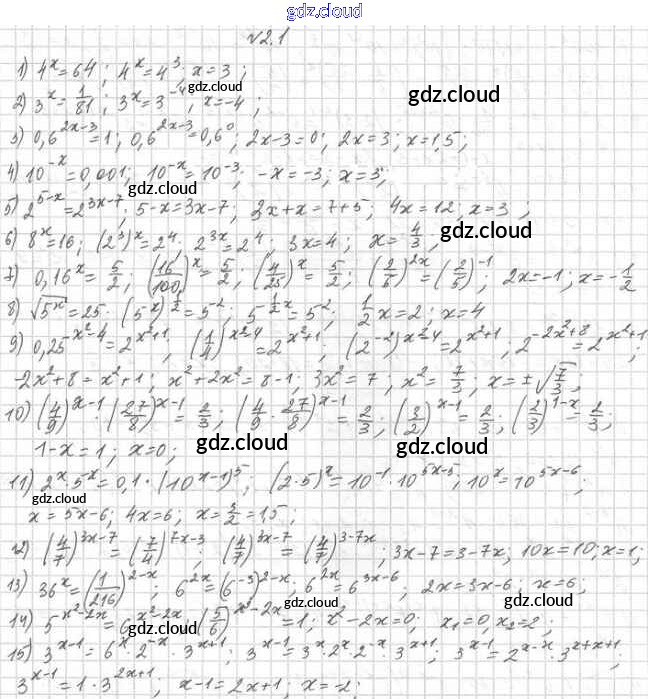 gdz.cloud
√2.1
1) 4^x = 64; 4^x = 4^3; x = 3;
gdz.cloud
2) 3^x = 1/81; 3^x = 3^-4, x = -4;
gdz.cloud
3) 0,6^(2x-3) = 1; 0,6^(2x-3) = 0,6^0; 2x-3 = 0; 2x = 3; x = 1,5;
4) 10^-x = 0,001; 10^-x = 10^-3; -x = -3; x = 3;
gdz.cloud
5) 2^(5-x) = 2^(3x-7); 5-x = 3x-7; 3x+x = 7+5; 4x = 12; x = 3;
gdz.cloud
6) 8^x = 16; (2^3)^x = 2^4; 2^(3x) = 2^4; 3x = 4; x = 4/3;
7) 0,16^x = 5/2; (16/100)^x = 5/2; (4/25)^x = 5/2; (2/5)^(2x) = (2/5)^-1; 2x = -1; x = -1/2
8) √5^x = 25; (5^x)^(1/2) = 5^2; 5^(1/2 x) = 5^2; 1/2 x = 2; x = 4
9) 0,25^(x²-4) = 2^(x²+1); (1/4)^(x²-4) = 2^(x²+1); (2^-2)^(x²-4) = 2^(x²+1); 2^(-2x²+8) = 2^(x²+1);
-2x²+8 = x²+1; x²+2x² = 8-1; 3x² = 7; x² = 7/3; x = ±√7/3;
10) (4/9)^(x-1) · (27/8)^(x-1) = 2/3; (4/9 · 27/8)^(x-1) = 2/3; (3/2)^(x-1) = 2/3; (2/3)^(1-x) = 2/3;
1-x = 1; x = 0;
gdz.cloud gdz.cloud
11) 2^x · 5^x = 0,1 · (10^(x-1))^5; (2·5)^x = 10^-1 · 10^(5x-5); 10^x = 10^(5x-6);
gdz.cloud
x = 5x-6; 4x = 6; x = 3/2 = 1,5;
gdz.cloud
12) (4/7)^(3x-7) = (7/4)^(7x-3); (4/7)^(3x-7) = (4/7)^(3-7x); 3x-7 = 3-7x; 10x = 10; x = 1;
13) 36^x = (1/216)^(2-x); 6^(2x) = (6^-3)^(2-x); 6^(2x) = 6^(3x-6); 2x = 3x-6; x = 6;
gdz.cloud gdz.cloud
14) 5^(x²-2x) = 6^(x²-2x); (5/6)^(x²-2x) = 1; x²-2x = 0; x₁ = 0, x₂ = 2;
gdz.cloud
15) 3^(x-1) = 6^x · 2^-x · 3^(x+1); 3^(x-1) = 3^x · 2^x · 2^-x · 3^(x+1); 3^(x-1) = 2^(x-x) · 3^(x+x+1);
3^(x-1) = 1 · 3^(2x+1); x-1 = 2x+1; x = -2;
gdz.cloud